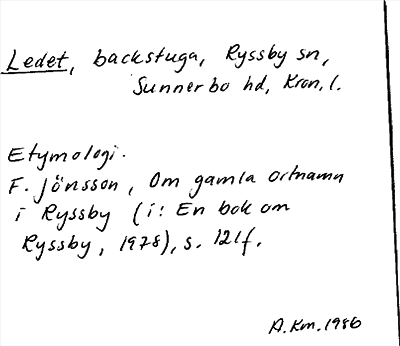 Ledet, backstuga, Ryssby sn,
Sunnerbo hd, Kron. l.
Etymologi.
F. Jönsson, Om gamla ortnamn
i Ryssby (i: En bok om
Ryssby, 1978), s. 121f.
A.Km.1986